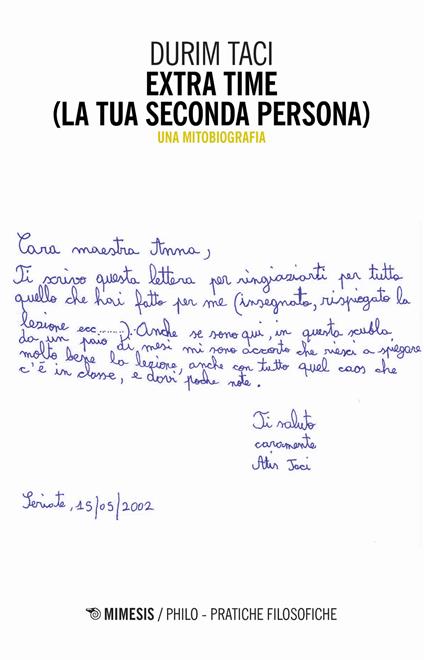 DURIM TACI
EXTRA TIME
(LA TUA SECONDA PERSONA)
UNA MITOBIOGRAFIA
Cara maestra Anna,
Ti scrivo questa lettera per ringiaziarti per tutto
quello che hai fatto per me (insegnato, rispiegato la
lezione ecc........). Anche se sono qui, in questa scuola
da un paio di mesi mi sono accorto che riesci a spiegare
molto bene la lezione, anche con tutto quel caos che
c'è in classe, e dovi poche note.
Ti saluto
caramente
Atis Taci
Seriate, 15/05/2002
MIMESIS / PHILO - PRATICHE FILOSOFICHE